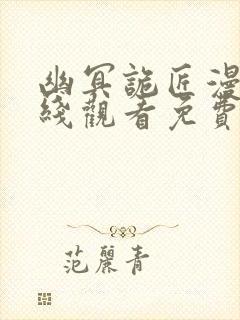 幽冥詭匠漫
綫觀看免費
范麗青